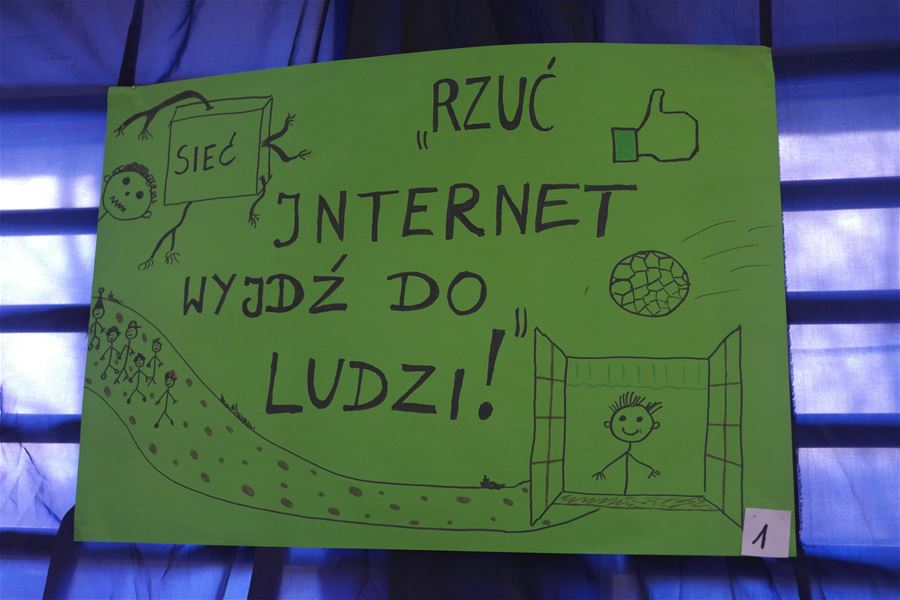 SIEĆ
„RZUĆ
INTERNET
WYJDŹ DO
LUDZI!"
1